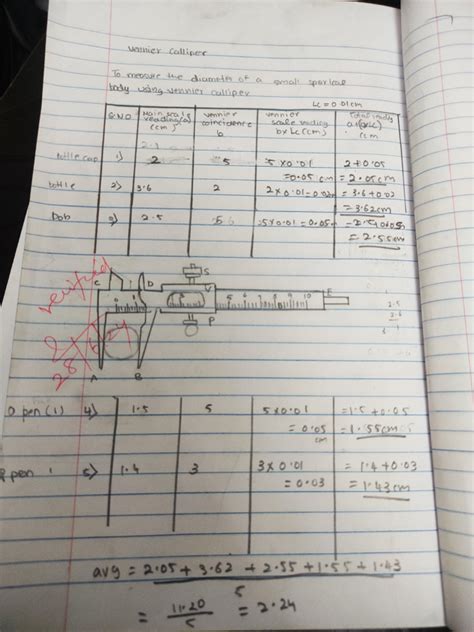 vernier Calliper
To measure the diameter of a small sperical
body using vernier calliper
Lc = 0.01cm
S.NO Main scale vernier vernier Total reading
reading(a) coincidence scale reading
(cm) b b x Lc (cm) (cm
2.1
bottle cap 1) 2 5 5 x 0.01 2+0.05
=0.05 cm = 2.05cm
bottle 2) 3.6 2 2 x 0.01 = 0.02 = 3.6 + 0.02
= 3.62cm
bob 3) 2.5 5 5 x 0.01 = 0.05 = 2.5+0.05
= 2.55cm
verified
28/6/24
C D S V E
5 6 7 8 9 10
P
A B
2.5
2.6
3
pen (1) 4) 1.5 5 5 x 0.01 = 1.5 + 0.05
= 0.05 = 1.55cm
cm
pen 5) 1.4 3 3 x 0.01 = 1.4 + 0.03
= 0.03 = 1.43 cm
avg = 2.05 + 3.62 + 2.55 + 1.55 + 1.43
5
= 11.20 = 2.24
5